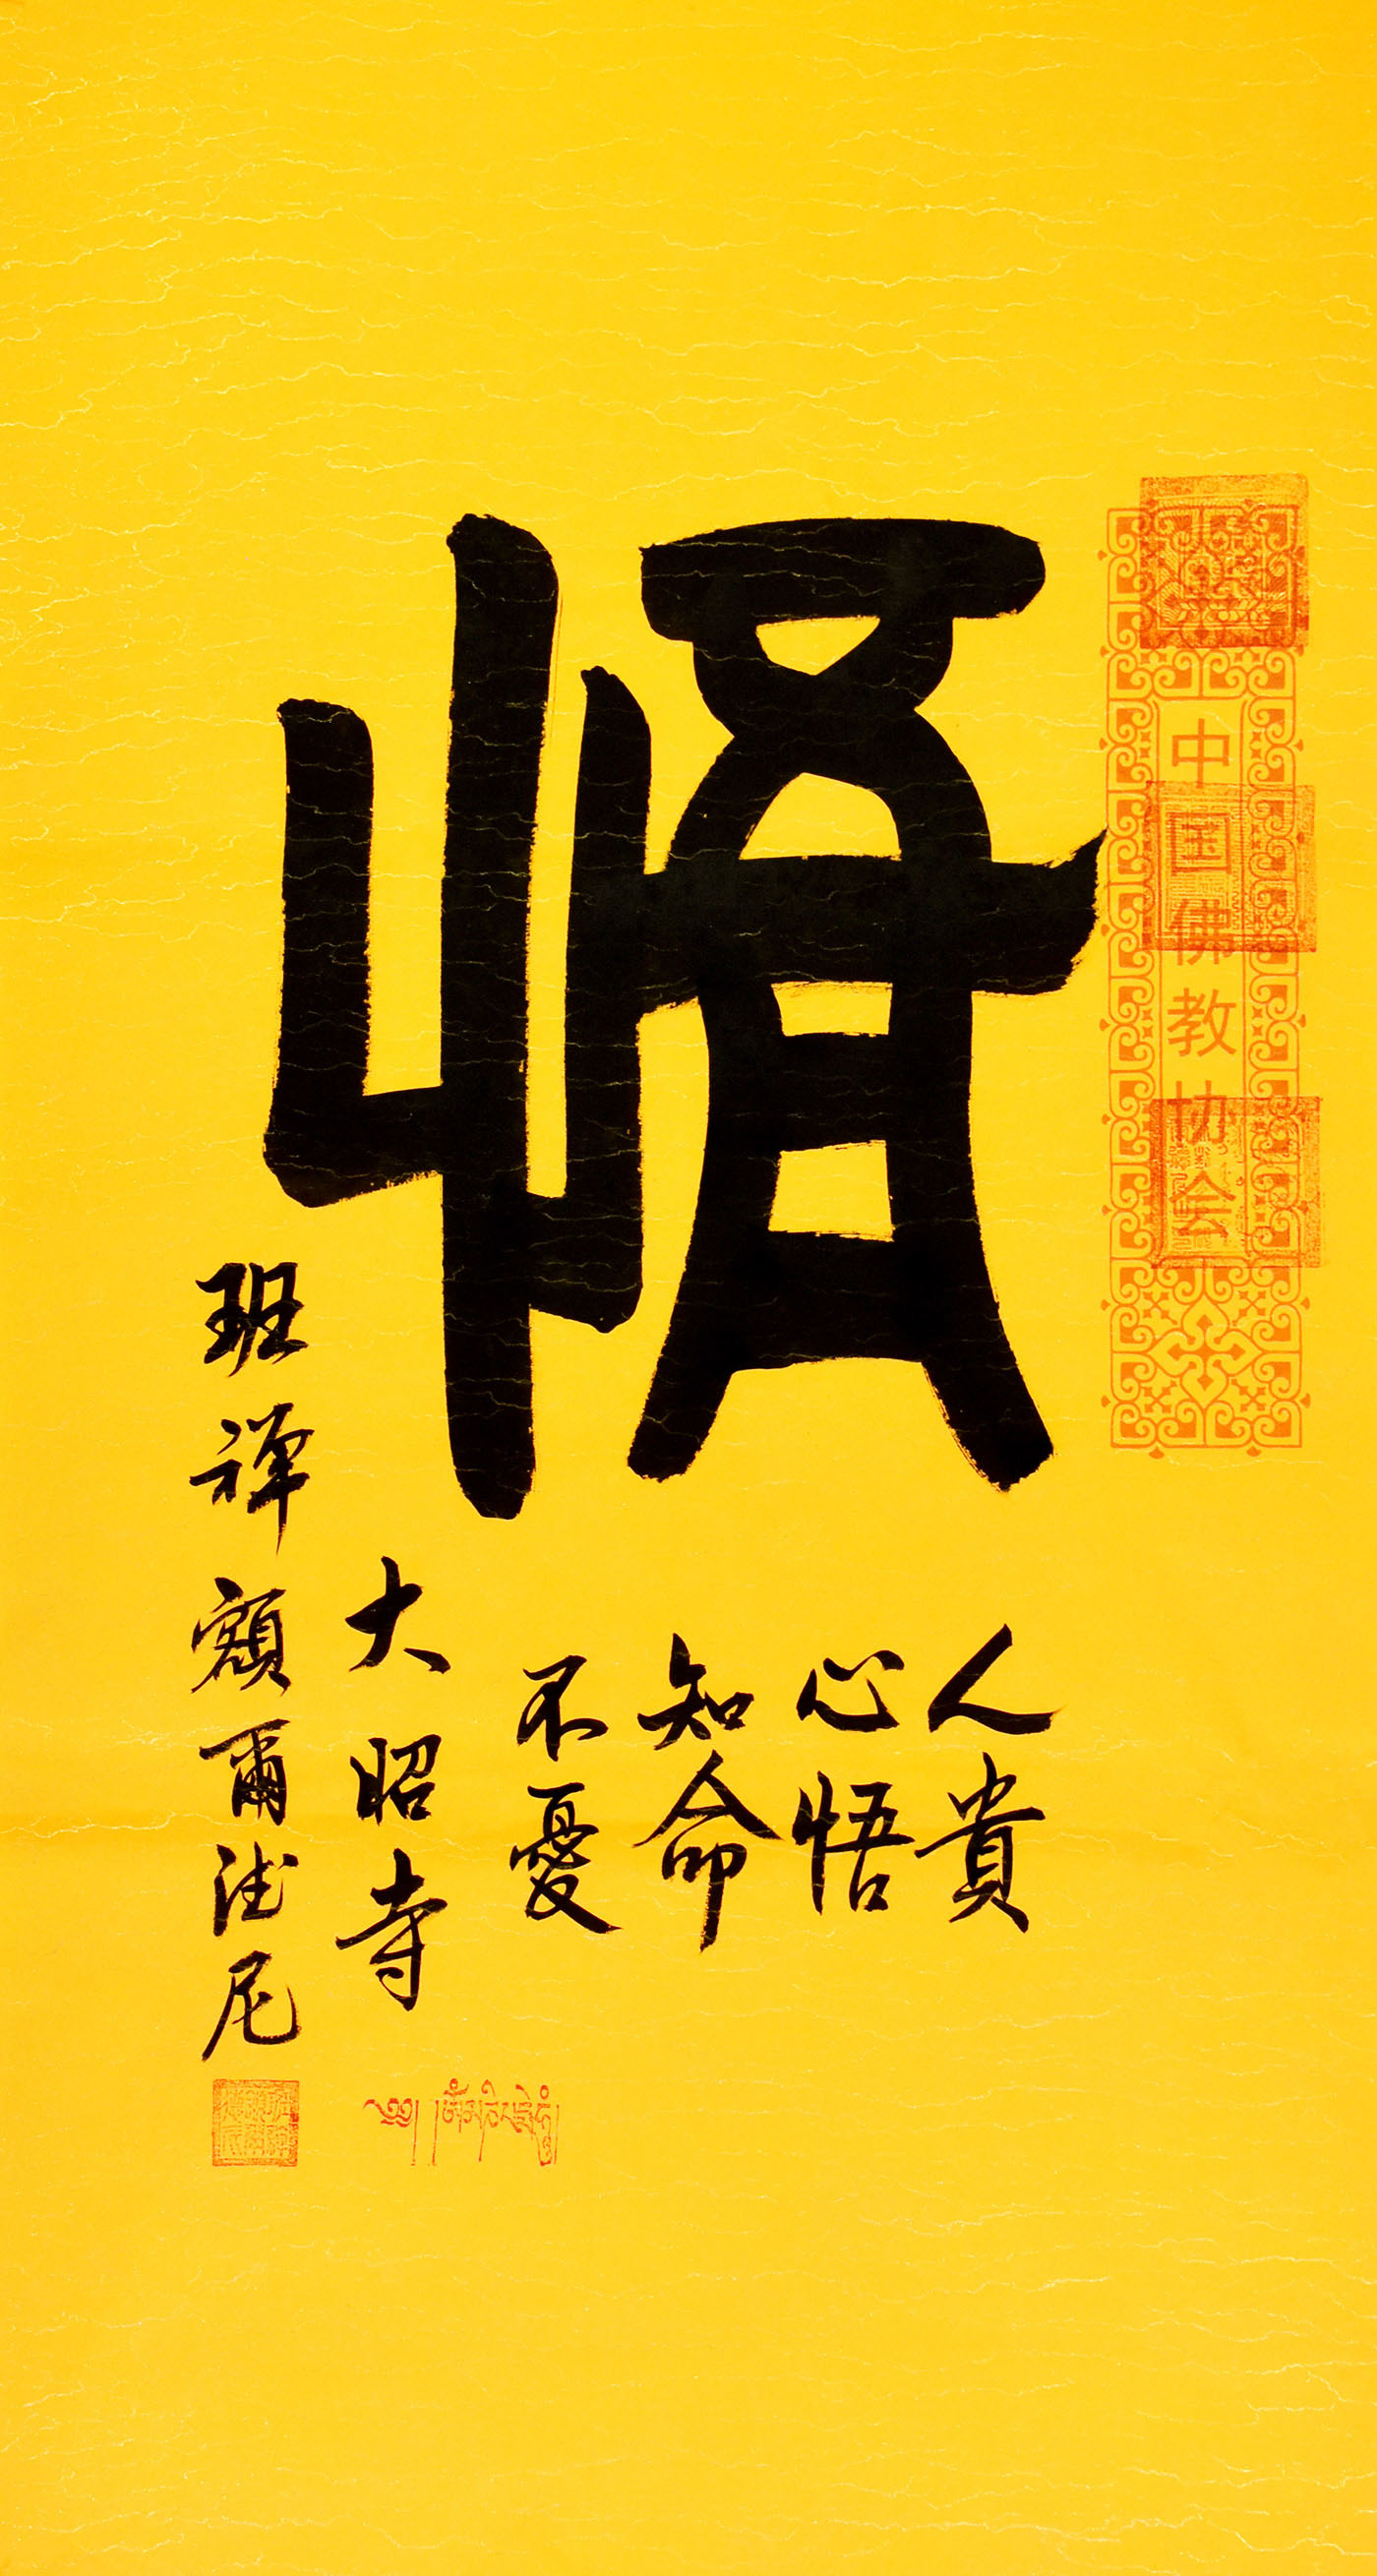 中国佛教协会
悟
人貴
心悟
知命
不憂
大昭寺
班禅額爾德尼
༄༅། །ཨོཾ་མ་ཎི་པདྨེ་ཧཱུྃ།